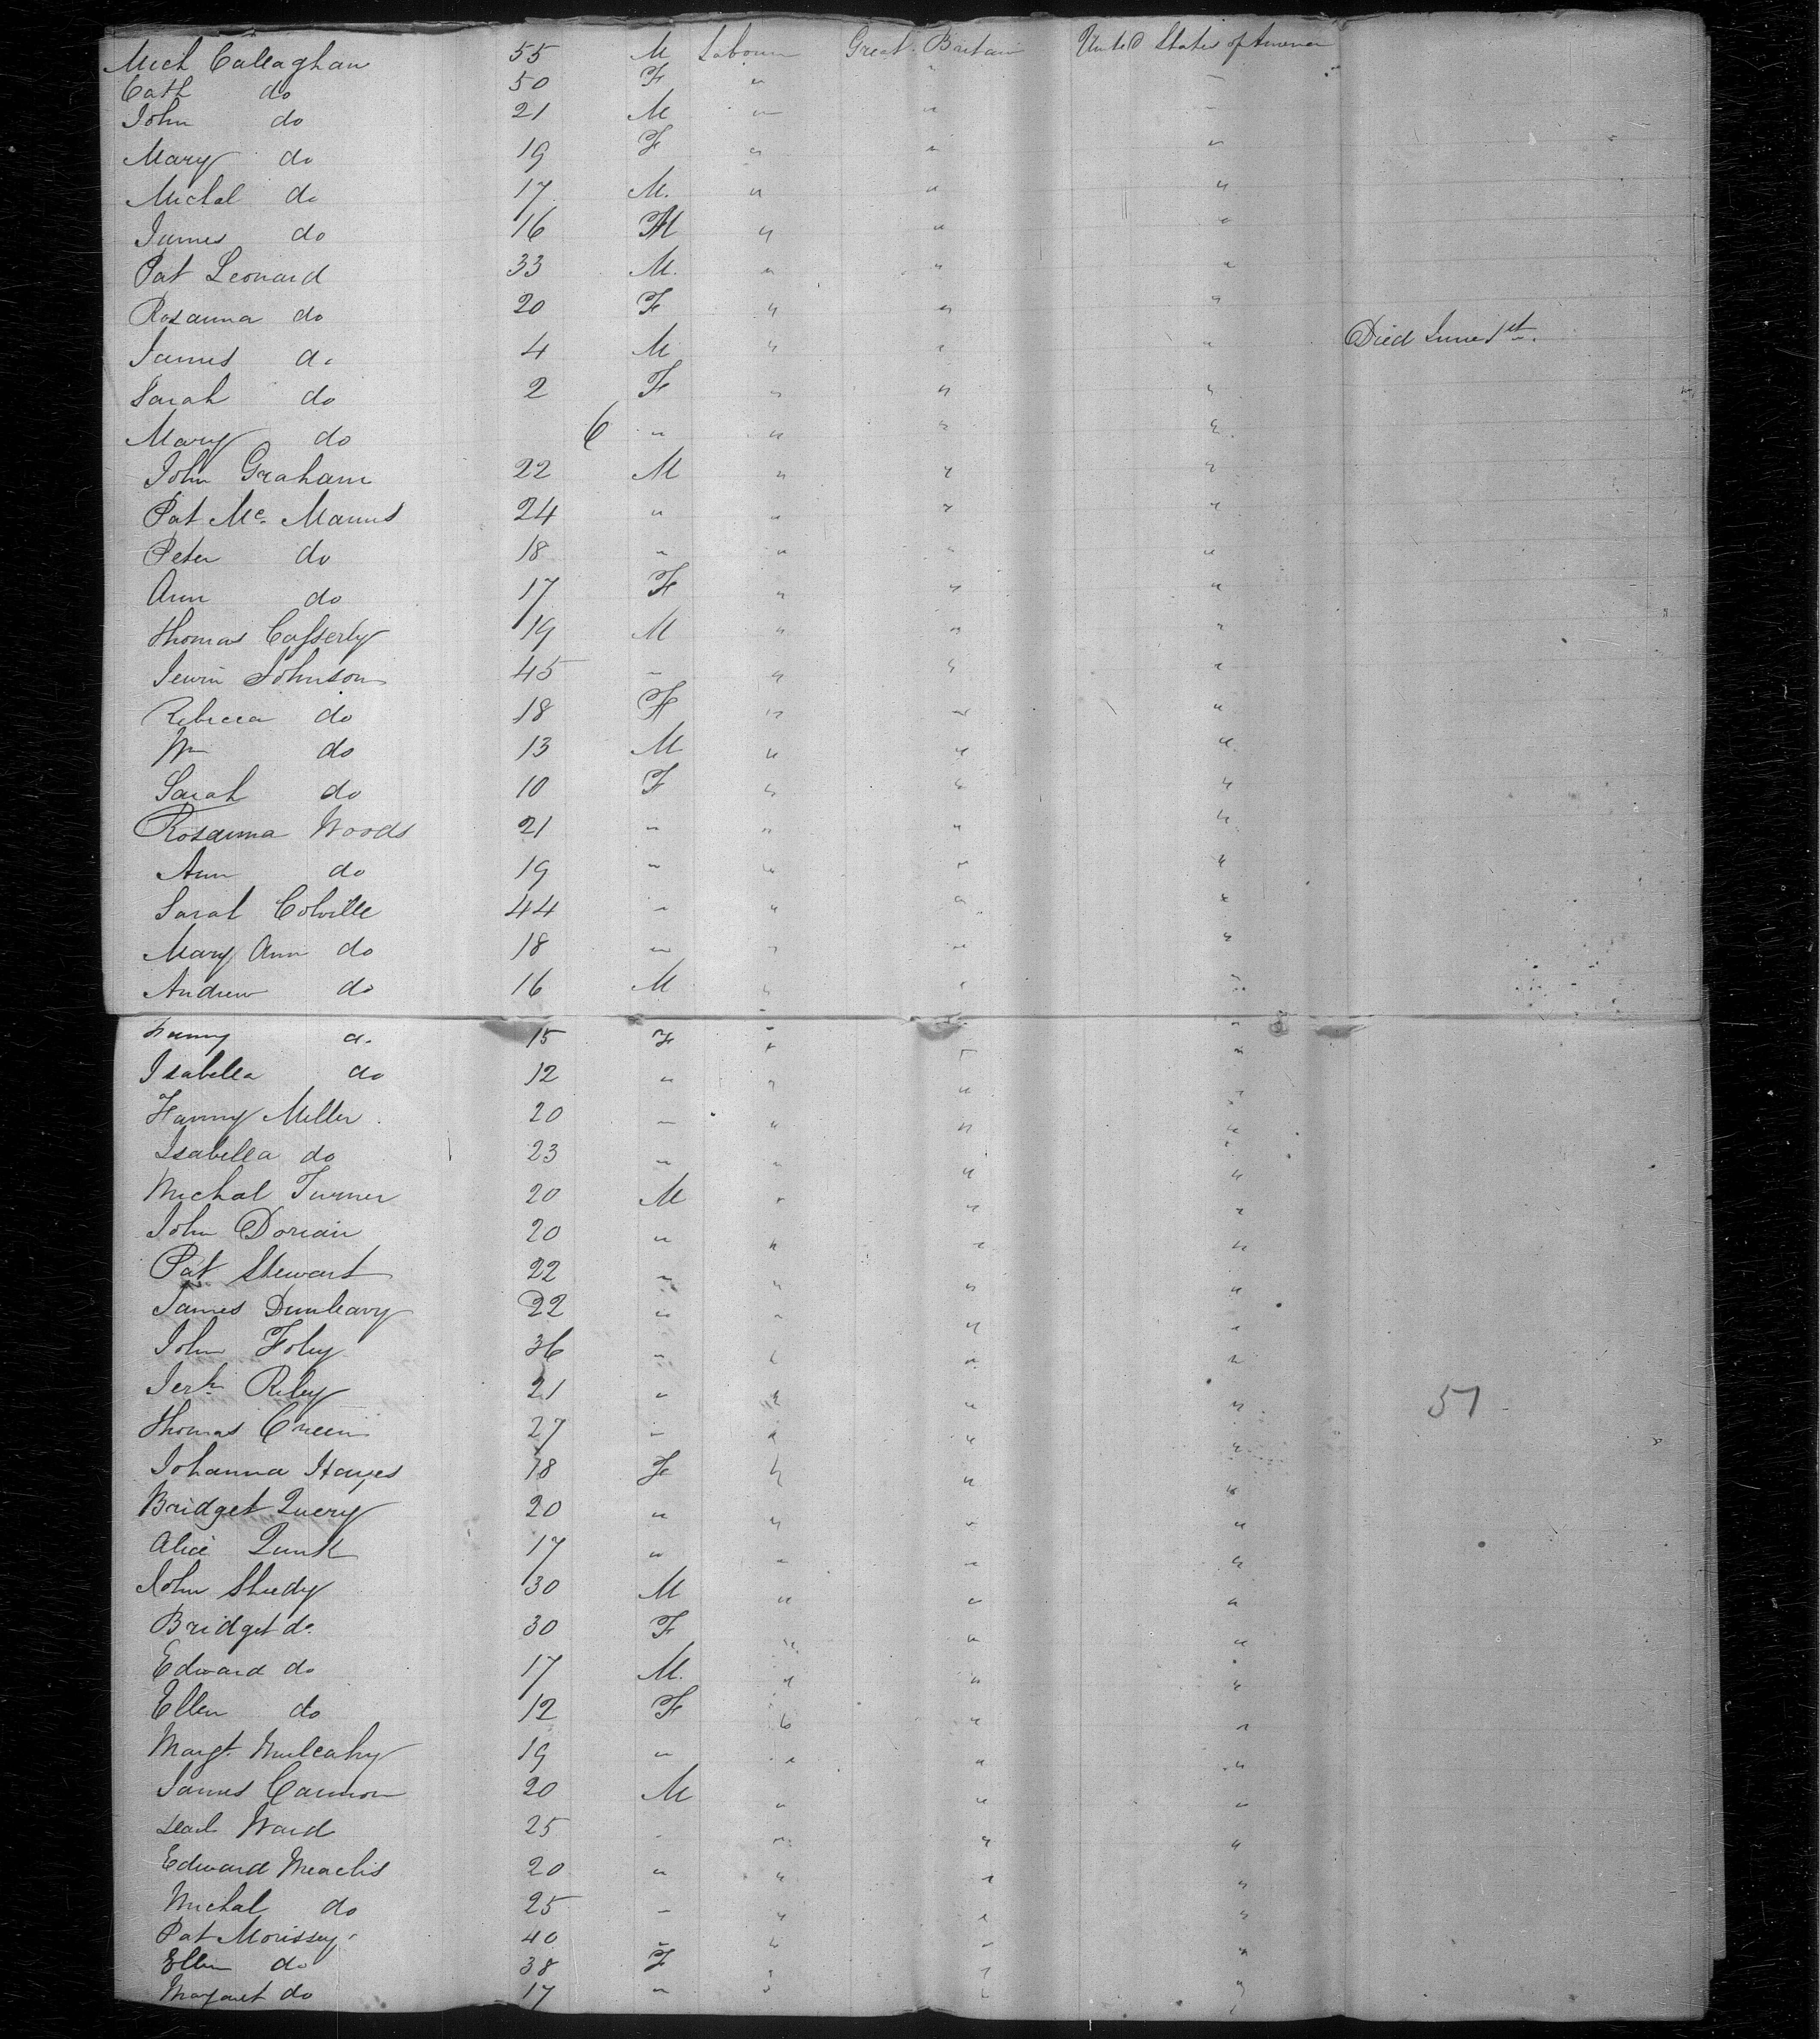 Mich Callaghan 55 M Labourer Great Britain United States of America
Cath do 50 F " " "
John do 21 M " " "
Mary do 19 F " " "
Michal do 17 M. " " "
James do 16 M " " "
Pat Leonard 33 M. " " "
Rosanna do 20 F " " "
James do 4 M " " " Died June 1st.
Sarah do 2 F " " "
Mary do 6 " " " "
John Graham 22 M " " "
Pat Mc. Manus 24 " " " "
Peter do 18 " " " "
Ann do 17 F " " "
Thomas Cafferty 19 M " " "
Johnson 45 " " " "
Rebecca do 18 F " " "
Wm do 13 M " " "
Sarah do 10 F " " "
Rosanna Woods 21 " " " "
Ann do 19 " " " "
Sarah Colville 44 " " " "
Mary Ann do 18 " " " "
Andrew do 16 M " " "
Fanny do 15 F " " "
Isabella do 12 " " " "
Fanny Miller 20 " " " "
Isabella do 23 " " " "
Michal Turner 20 M " " "
John Dorian 20 " " " "
Pat Stewart 22 " " " "
James Dunleavy 22 " " " "
John Foley 36 " " " "
Riley 21 " " " " 57
Thomas Green 27 " " " "
Johanna Hayes 18 F " " "
Bridget Query 20 " " " "
Alice 17 " " " "
John Sheedy 30 M " " "
Bridget do 30 F " " "
Edward do 17 M. " " "
Ellen do 12 F " " "
Margt. Mulcahy 19 " " " "
James Cannon 20 M " " "
Ward 25 " " " "
Edward 20 " " " "
Michal do 25 " " " "
Pat Morissey 40 " " " "
Ellen do 38 F " " "
Margaret do 17 " " " "